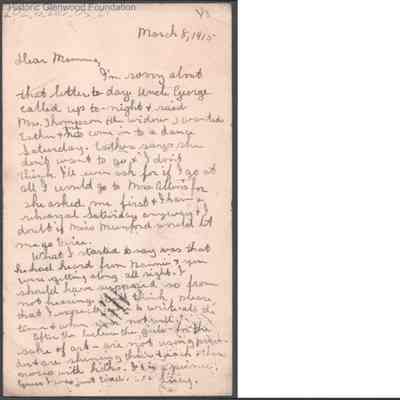 Historic Glenwood Foundation
March 8, 1915
Dear Mamma,
I'm sorry about
that letter to day. Uncle George
called up to-night & said
Mrs. Thompson (the widow) wanted
Esther & me come in to a dance
Saturday. Esther says she
don't want to go & I don't
think I'll even ask for if I go at
all I would go to Mrs.
she asked me first & I have a
rehearsal Saturday anyway & I
doubt if Miss Mumford would let
me go twice.
What I started to say was that
he had heard from & you
were getting along all right. I
should have supposed so from
not hearing think, please
that I expect to write all the
time & when not well.
After the lecture the girls - for the
sake of art - are not using
& are shining their
noses with